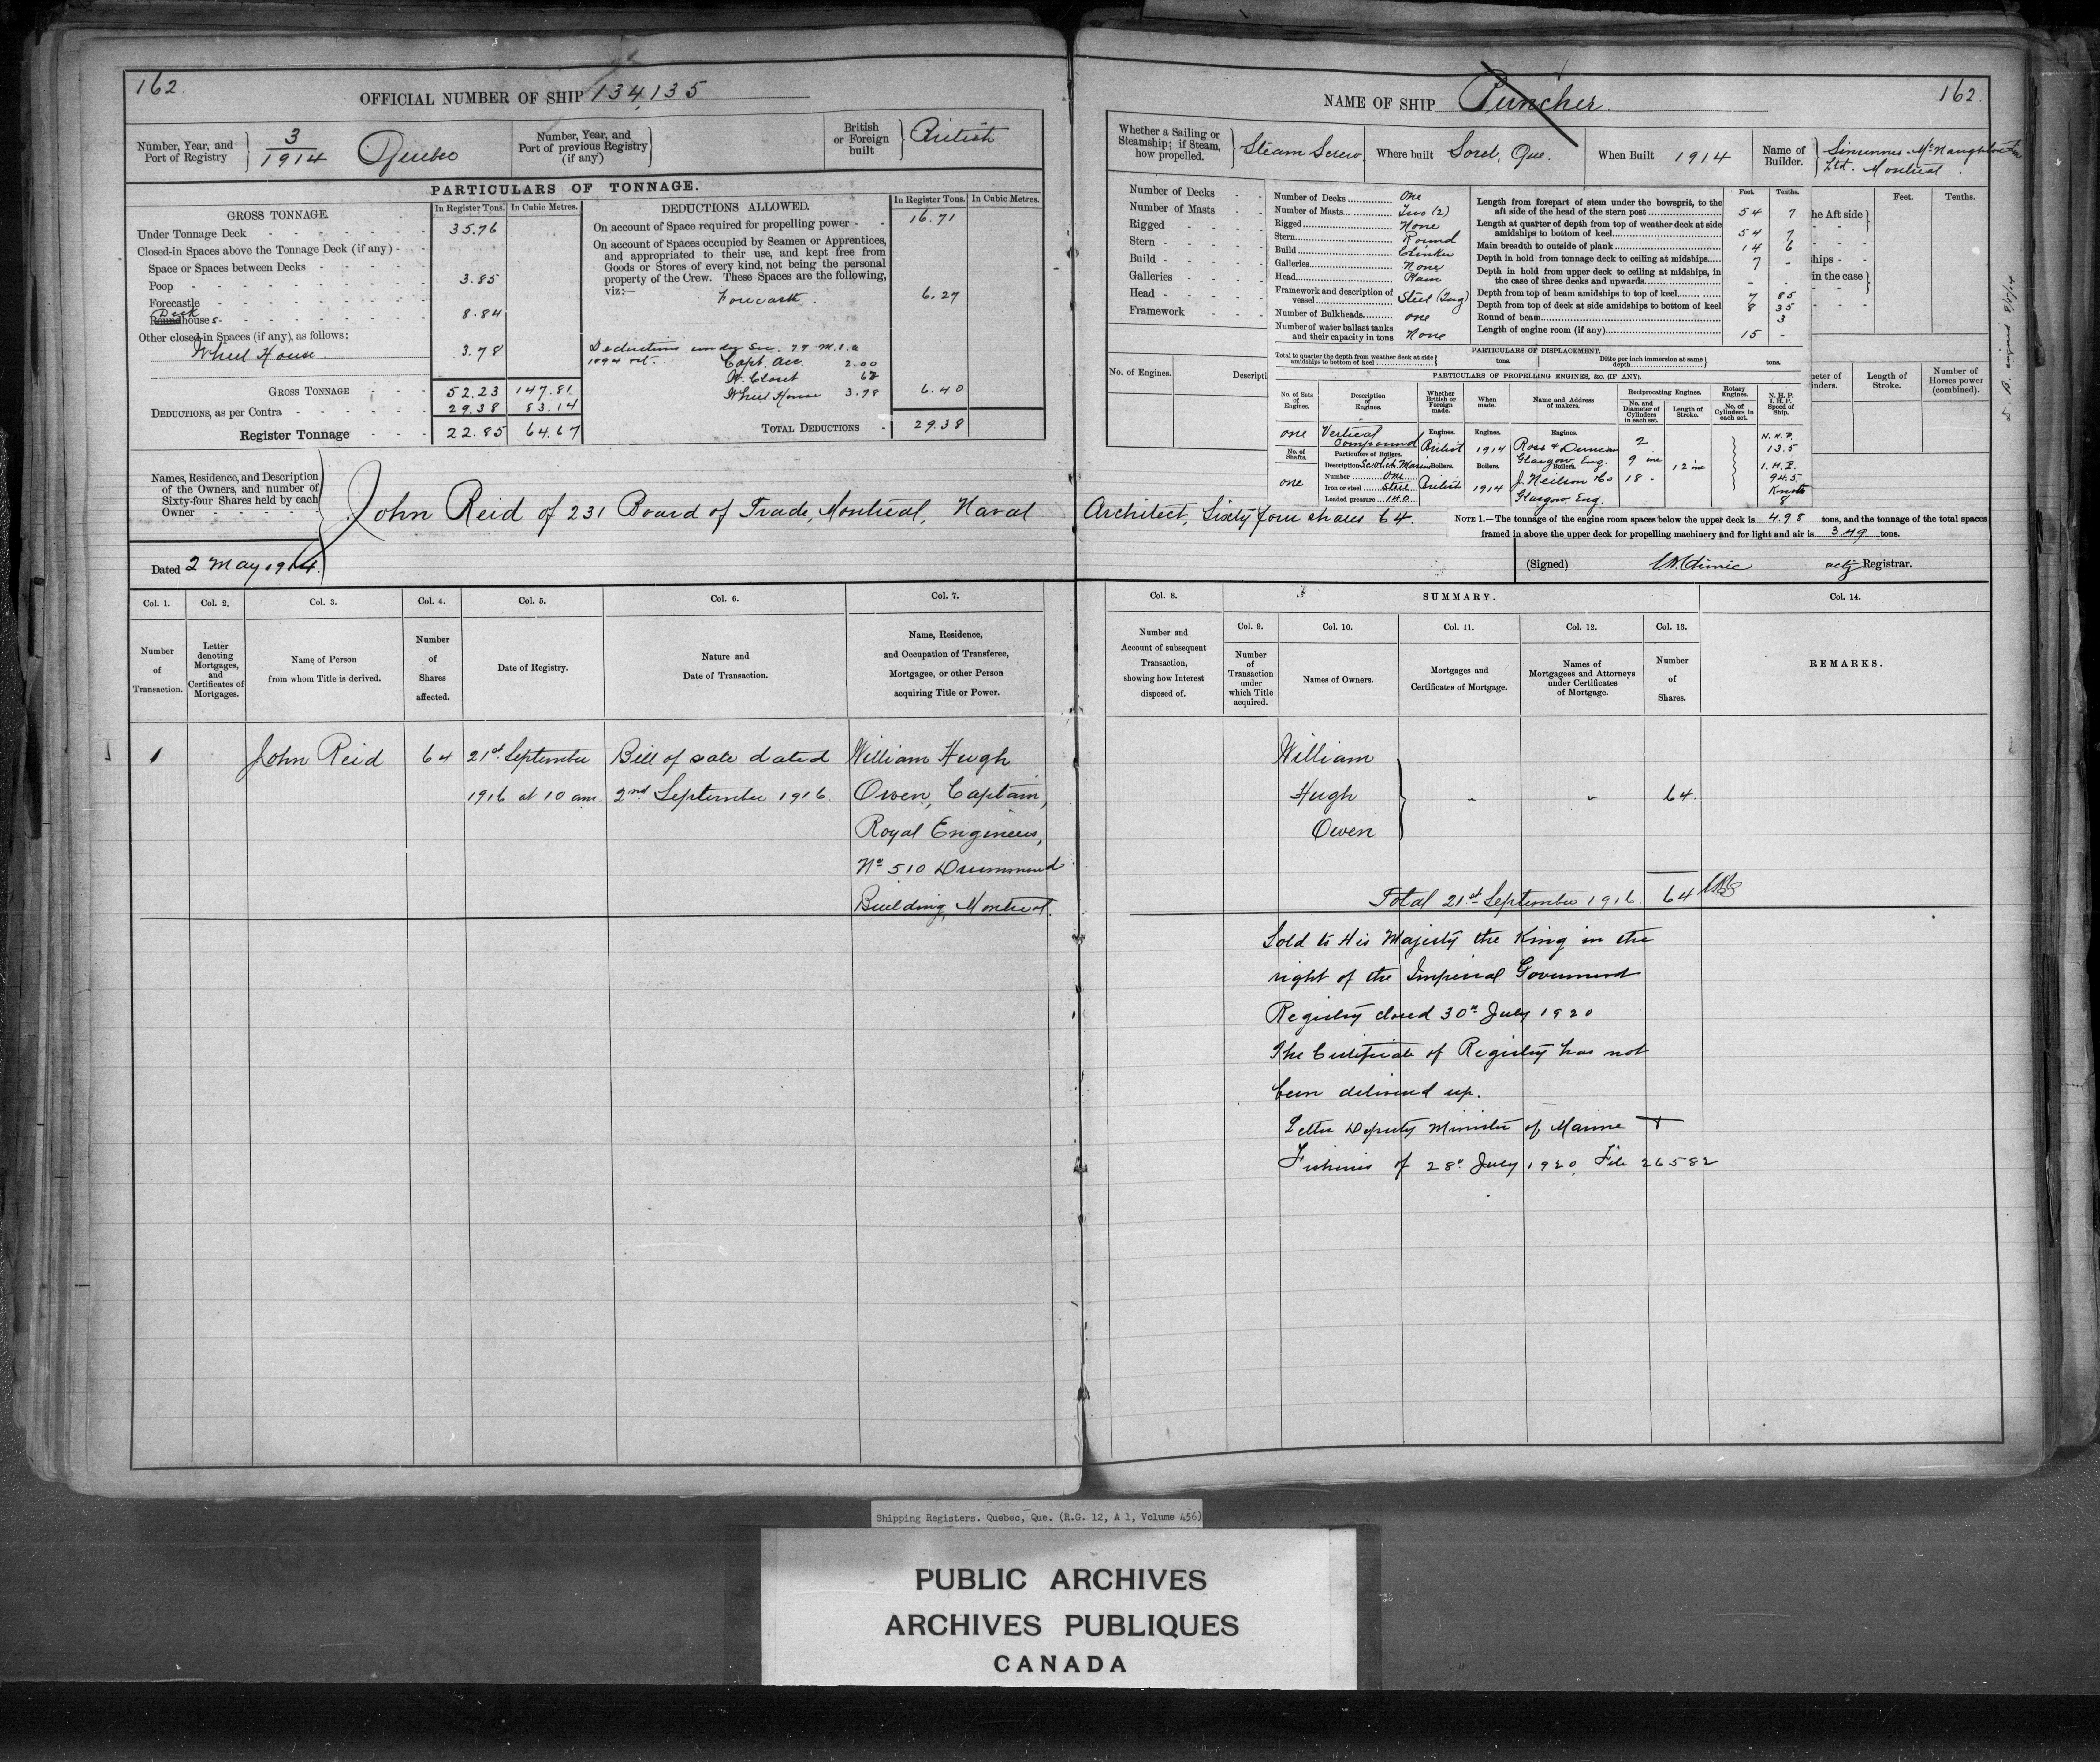 162.
OFFICIAL NUMBER OF SHIP 134,135
Number, Year, and Port of Registry } 3/1914 Quebec
Number, Year, and Port of previous Registry (if any) }
British or Foreign built } British
PARTICULARS OF TONNAGE.
GROSS TONNAGE. In Register Tons. In Cubic Metres.
Under Tonnage Deck 35.76
Closed-in Spaces above the Tonnage Deck (if any)
Space or Spaces between Decks
Poop 3.85
Forecastle
Deck
Roundhouses 8.84
Other closed-in Spaces (if any), as follows:
Wheel House 3.78
GROSS TONNAGE 52.23 147.81
DEDUCTIONS, as per Contra 29.38 83.14
Register Tonnage 22.85 64.67
DEDUCTIONS ALLOWED. In Register Tons. In Cubic Metres.
On account of Space required for propelling power 16.71
On account of Spaces occupied by Seamen or Apprentices,
and appropriated to their use, and kept free from
Goods or Stores of every kind, not being the personal
property of the Crew. These Spaces are the following,
viz:—
Forecastle. 6.27
Deductions under Sec. 79 M.S.A
1894 Capt. acc. 2.00
W. Closet 62
Wheel House 3.78 6.40
TOTAL DEDUCTIONS 29.38
Names, Residence, and Description
of the Owners, and number of
Sixty-four Shares held by each
Owner
John Reid of 231 Board of Trade, Montreal, Naval
Dated 2 May 1914.
Col. 1. Col. 2. Col. 3. Col. 4. Col. 5. Col. 6. Col. 7.
Number of Transaction.
Letter denoting Mortgages, and Certificates of Mortgages.
Name of Person from whom Title is derived.
Number of Shares affected.
Date of Registry.
Nature and Date of Transaction.
Name, Residence, and Occupation of Transferee, Mortgagee, or other Person acquiring Title or Power.
1 John Reid 64 21st September Bill of sale dated William Hugh
1916 at 10 am. 2nd September 1916. Owen, Captain,
Royal Engineers,
No 510 Drummond
Building, Montreal.
NAME OF SHIP Puncher.
162.
Whether a Sailing or Steamship; if Steam, how propelled. } Steam Screw.
Where built Sorel, Que.
When Built 1914
Name of Builder. } Sincennes-McNaughton
Ltd. Montreal.
Number of Decks
Number of Masts
Rigged
Stern
Build
Galleries
Head
Framework
No. of Engines.
Descripti
Number of Decks One
Number of Masts Two (2)
Rigged None
Stern Round
Build Clinker
Galleries None
Head Plain
Framework and description of vessel Steel (Tug)
Number of Bulkheads one
Number of water ballast tanks and their capacity in tons None
Feet. Tenths.
Length from forepart of stem under the bowsprit, to the
aft side of the head of the stern post 54 7
Length at quarter of depth from top of weather deck at side
amidships to bottom of keel 54 7
Main breadth to outside of plank 14 6
Depth in hold from tonnage deck to ceiling at midships 7 -
Depth in hold from upper deck to ceiling at midships, in
the case of three decks and upwards - -
Depth from top of beam amidships to top of keel 7 85
Depth from top of deck at side amidships to bottom of keel 8 35
Round of beam 3
Length of engine room (if any) 15 -
he Aft side}
hips - -
in the case}
Feet. Tenths.
meter of inders.
Length of Stroke.
Number of Horses power (combined).
PARTICULARS OF DISPLACEMENT.
Total to quarter the depth from weather deck at side amidships to bottom of keel } tons.
Ditto per inch immersion at same depth } tons.
PARTICULARS OF PROPELLING ENGINES, &c. (IF ANY).
No. of Sets of Engines.
Description of Engines.
Whether British or Foreign made.
When made.
Name and Address of makers.
Reciprocating Engines.
No. and Diameter of Cylinders in each set.
Length of Stroke.
Rotary Engines.
No. of Cylinders in each set.
N. H. P. I. H. P. Speed of Ship.
one Vertical Compound Engines. British Engines. 1914 Engines. Ross & Duncan Glasgow, Eng. 2 9 ins 18 - 12 ins
N.H.P. 13.5
I.H.P. 94.5
Knots 8
No. of Shafts. one
Particulars of Boilers.
Description Scotch Marine
Number one
Iron or steel Steel
Loaded pressure 140
Boilers. British Boilers. 1914 Boilers. J. Neilson & Co
Glasgow, Eng.
Architect, Sixty four shares 64.
NOTE 1.—The tonnage of the engine room spaces below the upper deck is 4.98 tons, and the tonnage of the total spaces
framed in above the upper deck for propelling machinery and for light and air is 3.49 tons.
(Signed) acty Registrar.
Col. 8. SUMMARY. Col. 14.
Col. 9. Col. 10. Col. 11. Col. 12. Col. 13.
Number and Account of subsequent Transaction, showing how Interest disposed of.
Number of Transaction under which Title acquired.
Names of Owners.
Mortgages and Certificates of Mortgage.
Names of Mortgagees and Attorneys under Certificates of Mortgage.
Number of Shares.
REMARKS.
William
Hugh } - - 64.
Owen
Total 21st September 1916. 64
Sold to His Majesty the King in the
right of the Imperial Government
Registry closed 30th July 1920
The Certificate of Registry has not
been delivered up.
Letter Deputy Minister of Marine +
Fisheries of 28th July 1920. File 26582
Shipping Registers. Quebec, Que. (R.G. 12, A 1, Volume 456)
PUBLIC ARCHIVES
ARCHIVES PUBLIQUES
CANADA